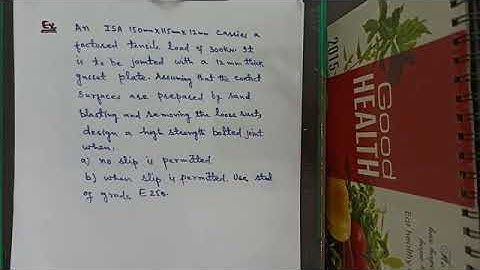 Ex. An ISA 150mmX115mmX12mm Carries a
factored tensile load of 300KN. It
is to be jointed with a 12mm thick
gusset plate. Assuming that the contact
surfaces are prepared by sand
blasting and removing the loose rust,
design a high strength bolted joint
when.
a) no slip is permitted
b) when slip is permitted. Use steel
of grade E250.
Good
HEALTH
2015
Eat healthy